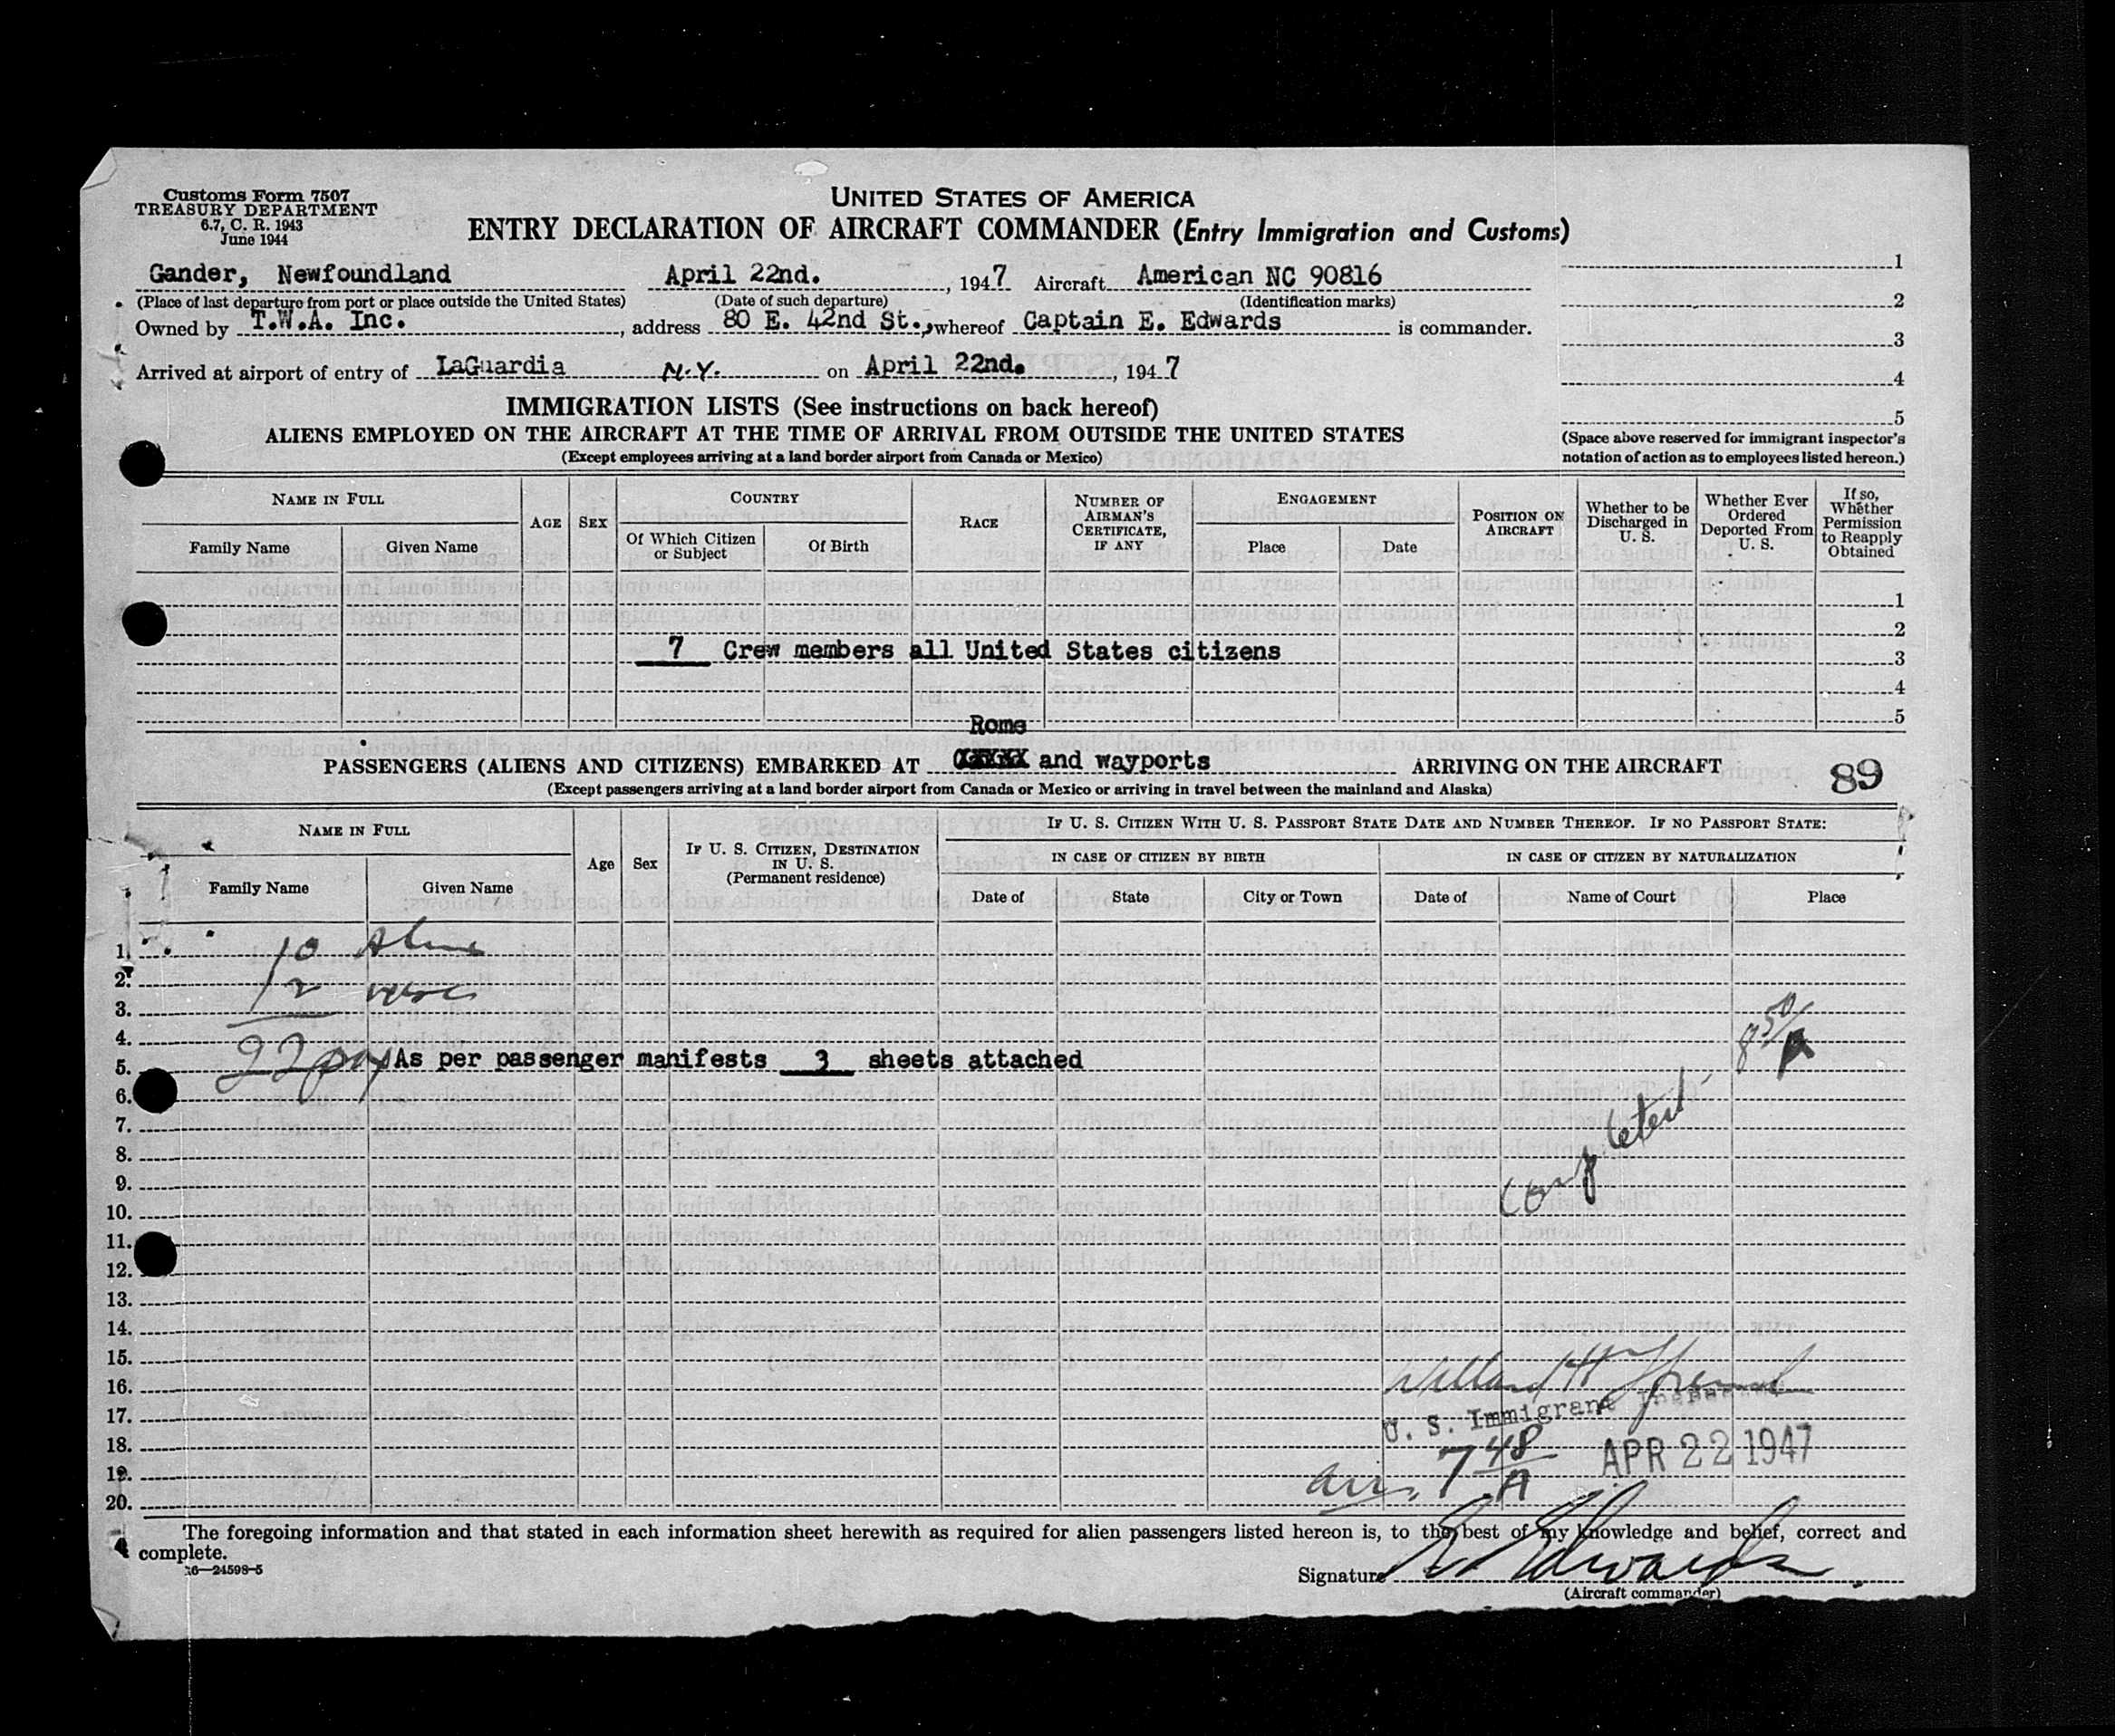 Customs Form 7507
TREASURY DEPARTMENT
6.7, C. R. 1943
June 1944
UNITED STATES OF AMERICA
ENTRY DECLARATION OF AIRCRAFT COMMANDER (Entry Immigration and Customs)
Gander, Newfoundland April 22nd. , 1947 Aircraft American NC 90816
(Place of last departure from port or place outside the United States) (Date of such departure) (Identification marks)
Owned by T.W.A. Inc. , address 80 E. 42nd St., whereof Captain E. Edwards is commander.
Arrived at airport of entry of LaGuardia N.Y. on April 22nd. , 1947
1
2
3
4
5
(Space above reserved for immigrant inspector's
notation of action as to employees listed hereon.)
IMMIGRATION LISTS (See instructions on back hereof)
ALIENS EMPLOYED ON THE AIRCRAFT AT THE TIME OF ARRIVAL FROM OUTSIDE THE UNITED STATES
(Except employees arriving at a land border airport from Canada or Mexico)
NAME IN FULL
Family Name Given Name
AGE
SEX
COUNTRY
Of Which Citizen or Subject
Of Birth
RACE
NUMBER OF AIRMAN'S CERTIFICATE, IF ANY
ENGAGEMENT
Place Date
POSITION ON AIRCRAFT
Whether to be Discharged in U. S.
Whether Ever Ordered Deported From U. S.
If so, Whether Permission to Reapply Obtained
1
2
7 Crew members all United States citizens 3
4
5
Rome
and wayports
PASSENGERS (ALIENS AND CITIZENS) EMBARKED AT ARRIVING ON THE AIRCRAFT 89
(Except passengers arriving at a land border airport from Canada or Mexico or arriving in travel between the mainland and Alaska)
NAME IN FULL
Family Name Given Name
Age
Sex
IF U. S. CITIZEN, DESTINATION IN U. S.
(Permanent residence)
IF U. S. CITIZEN WITH U. S. PASSPORT STATE DATE AND NUMBER THEREOF. IF NO PASSPORT STATE:
IN CASE OF CITIZEN BY BIRTH
IN CASE OF CITIZEN BY NATURALIZATION
Date of State City or Town Date of Name of Court Place
1. 10
2. 12
3.
4.
5. 22 pax As per passenger manifests 3 sheets attached
8 50/A
6.
7.
Completed
8.
9.
10.
11.
12.
13.
14.
15.
16. Willard H
17. U. S. Immigrant Inspector
18. APR 22 1947
19. arr. 7 48/A
20.
The foregoing information and that stated in each information sheet herewith as required for alien passengers listed hereon is, to the best of my knowledge and belief, correct and
complete.
16—24598-5
Signature E. Edwards
(Aircraft commander)